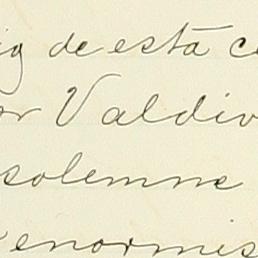 de esta
Valdiv
solemne
enormis